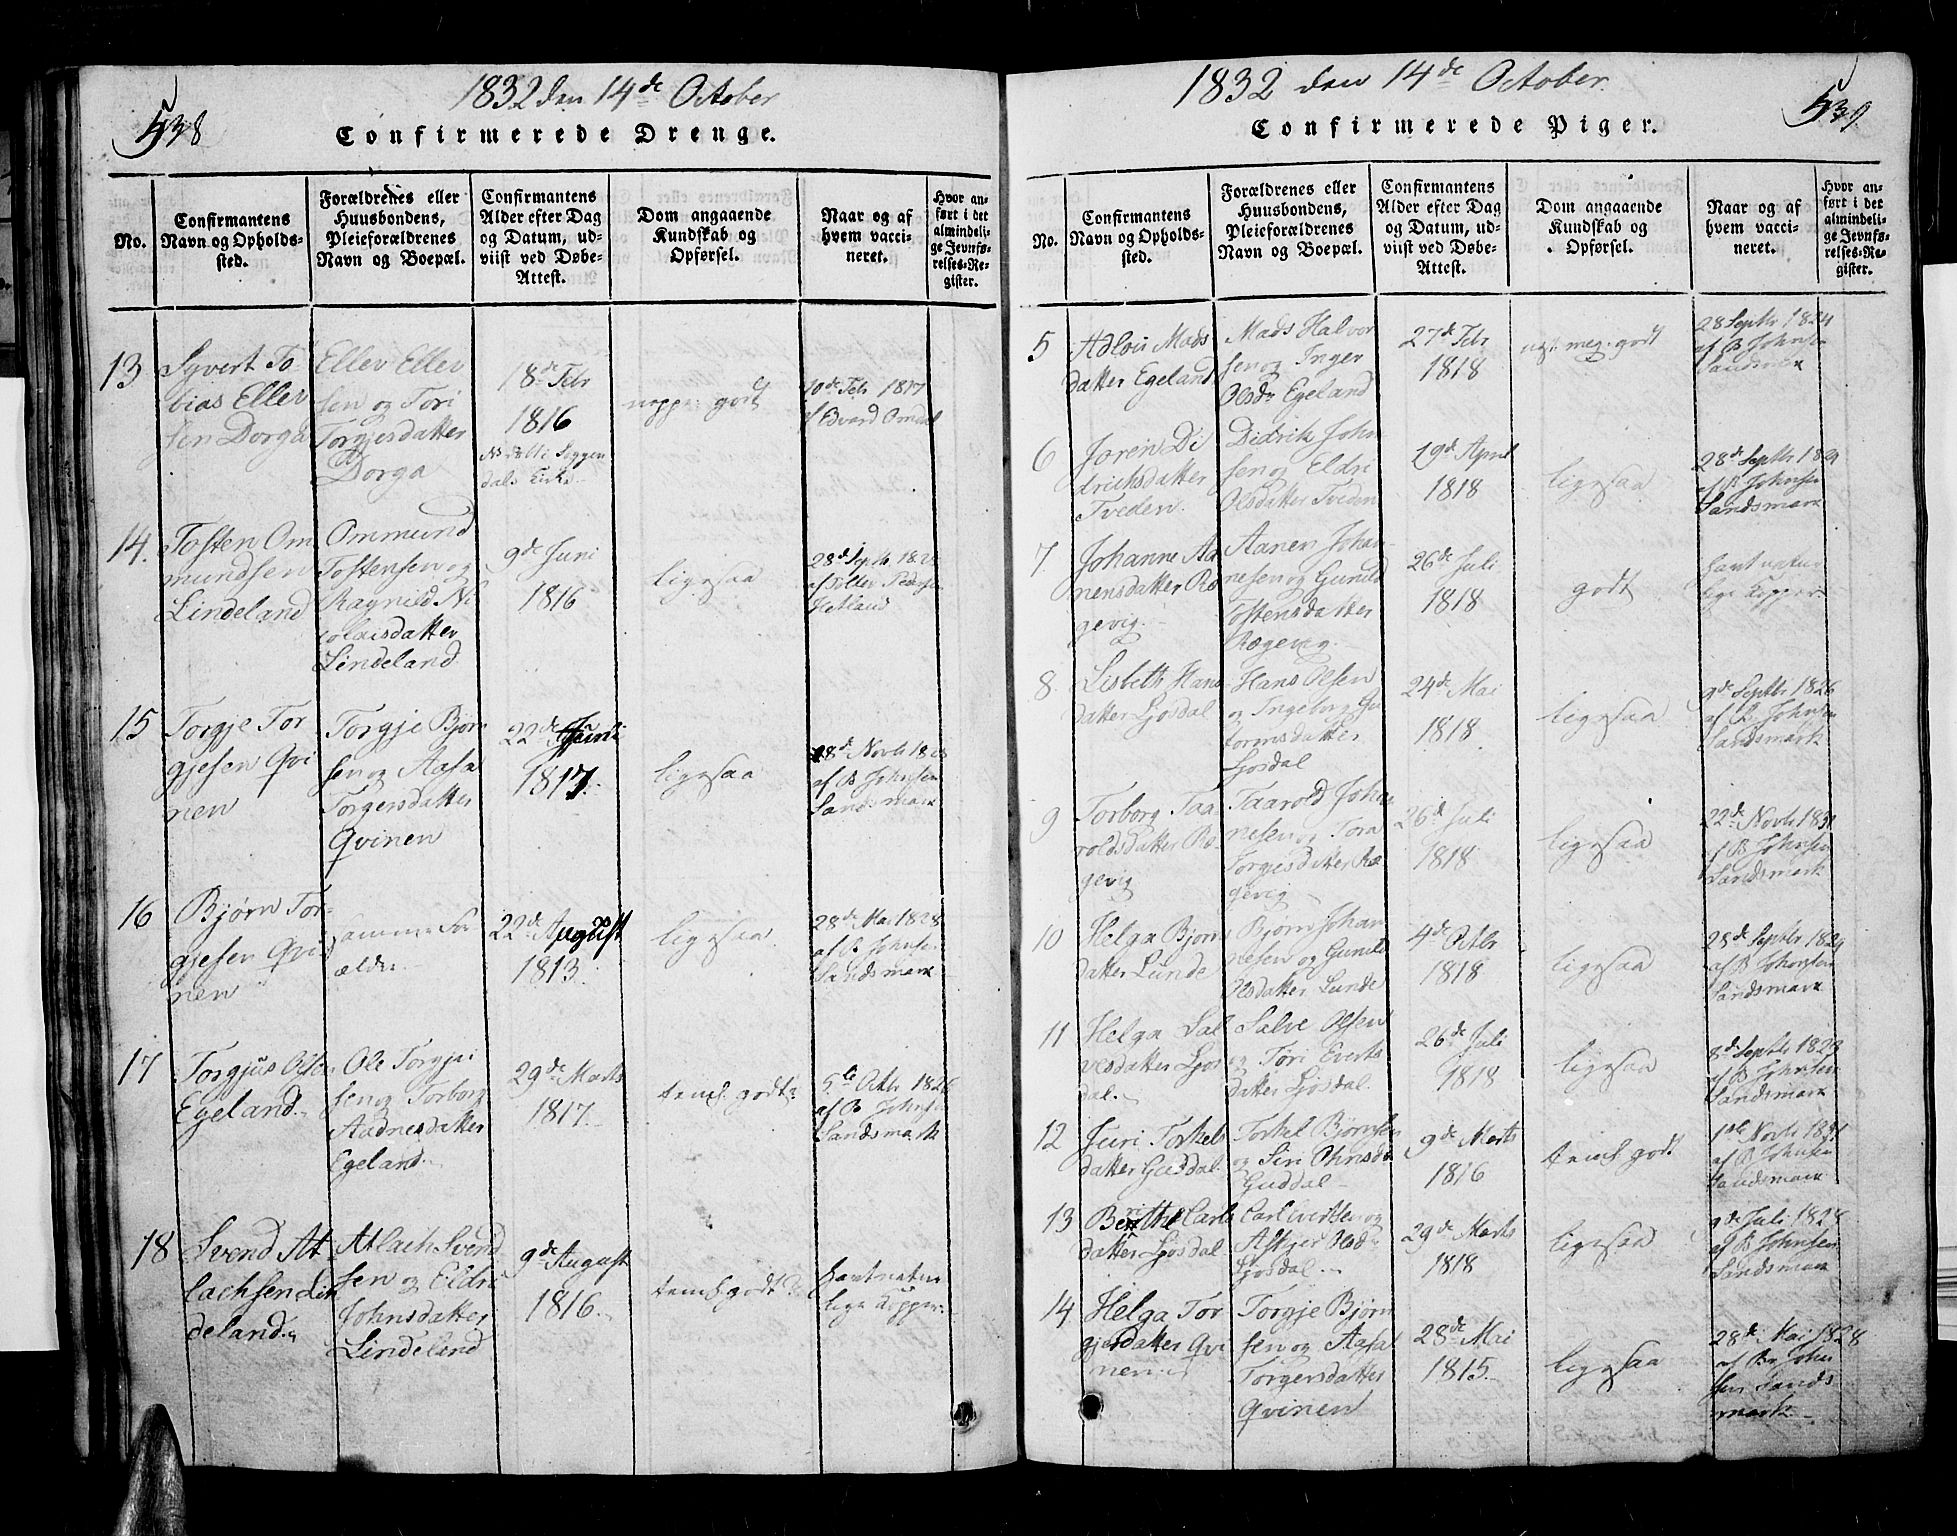 538
1832 den 14de October
Confirmerede Drenge.
No.
Confirmantens
Navn og Opholds-
sted.
Forældrenes eller
Huusbondens,
Pleieforældrenes
Navn og Boepæl.
Confirmantens
Alder efter Dag
og Datum, ud-
viist ved Døbe-
Attest.
Dom angaaende
Kundskab og
Opførsel.
Naar og af
hvem vacci-
neret.
Hvor an-
ført i det
almindeli-
ge Jevnfø-
relses-Re-
gister.
13
Syvert To-
bias Ellev
sen Dorga
Ellev Ellev
sen og Tori
Torgjesdatter
Dorga
18de Febr
1816
godt
10de Febr 1817
af Edvard Omdal
14.
Tosten Om
mundsen
Lindeland
Ommund
Tostensen og
Ragnild Ni
colaisdatter
Lindeland
9de Juni
1816
ligesaa
28de Septbr
af Tellev Peders
Hetland
15
Torgje Tor
gjesen Qvi
nen
Torgje Bjørn
sen og Aasa
Torgersdatter
Qvinen
22de Juni
1817.
ligesaa
28de Novbr 1828
af B Johnsen
Sandsmark
16
Bjørn Tor-
gjesen Qvi
nen
samme For
ældre
22de August
1813.
ligesaa
28de Mai 1828
af B Johnsen
Sandsmark
17
Torgjus Olsen
Egeland.
Ole Torgju
sen og Torborg
Aadnesdatter
Egeland.
29de Marts
1817.
teml. godt
5te Octbr 1826
af B Johnsen
Sandsmark
18
Svend At
lachsen Lin
deland.
Atlach Svend
sen og Eldri
Johnsdatter
Lindeland
9de August
1816.
teml godt
havt natur
lige Kopper.
539
1832 den 14de October.
Confirmerede Piger.
No.
Confirmantens
Navn og Opholds-
sted.
Forældrenes eller
Huusbondens,
Pleieforældrenes
Navn og Boepæl.
Confirmantens
Alder efter Dag
og Datum, ud-
viist ved Døbe-
Attest.
Dom angaaende
Kundskab og
Opførsel.
Naar og af
hvem vacci-
neret.
Hvor an-
ført i det
almindeli-
ge Jevnfø-
relses-Re-
gister.
5
Adlou Mads
datter Egeland
Mads Halvor
sen og Inger
Olsdr Egeland
27de Febr
1818
meg. godt
28 Septbr 1824
af B Johnsen
Sandsmark
6
Joren Di
drichsdatter
Tveden.
Didrik John
sen og Eldri
Olsdatter Tveden
19de April
1818
ligesaa
28de Septbr 1824
af B Johnsen
Sandsmark
7
Johanne Aa
nensdatter Ræ
gevig.
Aanen Johan
nesen og Gunild
Tostensdatter
Rægevig.
26de Juli
1818
godt
havt natur
lige Kopper
8
Lisbeth Hans
datter Ljosdal
Hans Olsen
og Ingeborg Gu
tormsdatter
Ljosdal
24de Mai
1818.
ligesaa
9de Septbr 1826
af B. Johnsen
Sandsmark
9
Torborg Taa-
roldsdatter Ræ
gevig
Taarold Johan
nesen og Tora
Torgjesdatter Ræ
gevig
26de Juli
1818
ligesaa
22de Novbr 1831
af B Johnsen
Sandsmark
10
Helga Bjørns
datter Lunde
Bjørn Johan
nesen og Gunild
Olsdatter Lunde
4de Octbr
1818
ligesaa
28de Septbr 1824
af B Johnsen
Sandsmark
11
Helga Sal
vesdatter Ljos
dal.
Salve Olsen
og Tori Everts
datter Ljosdal.
26de Juli
1818
ligesaa
8de Septbr
af B Johnsen
Sandsmark
12
Juri Torkels
datter Guddal
Torkel Bjørnsen
og Siri Ohnsdr
Guddal
9de Marts
1816
teml godt
1ste Novbr 1831
af B Johnsen
Sandsmark
13
Berthe Carls
datter Ljosdal
Carl Evertsen og
Askjer Olsdr
Ljosdal
29de Marts
1818
ligesaa
9de Juli 1828
af B Johnsen
Sandsmark
14
Helga Tor
gjesdatter Qvi
nen
Torgje Bjørn
sen og Aasa
Torgersdatter
Qvinen
28de Mai
1815.
ligesaa
28de Mai 1828
af Br John
sen Sands
mark.